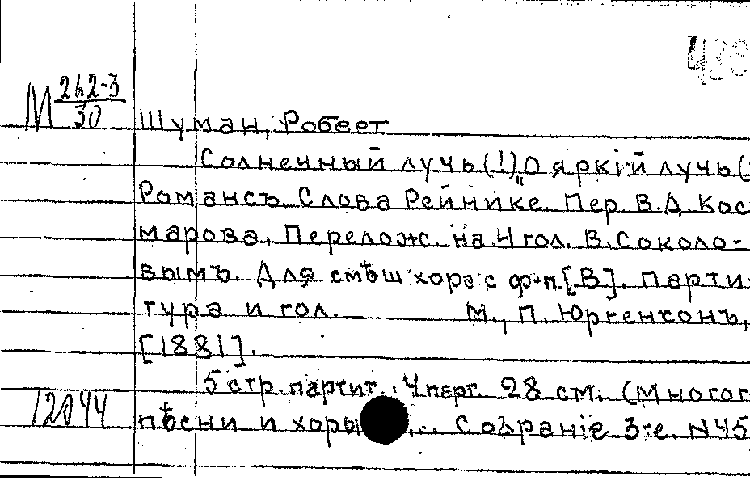 438
М 262-3/30
Шуман, Роберт
Солнечный лучь (!) „О яркiй лучь (
Романсъ. Слова Рейнике. Пер. В.А. Кос
марова. Перелож. на 4 гол. В. Соколо-
вымъ. Для смѣш. хора с ф-п. [В]. Парти-
тура и гол. М., П. Юргенсонъ,
[1881].
5 стр. партит., 4 парт. 28 см. (Многог
12044
пѣсни и хоры ... Собранiе 3-е. N45